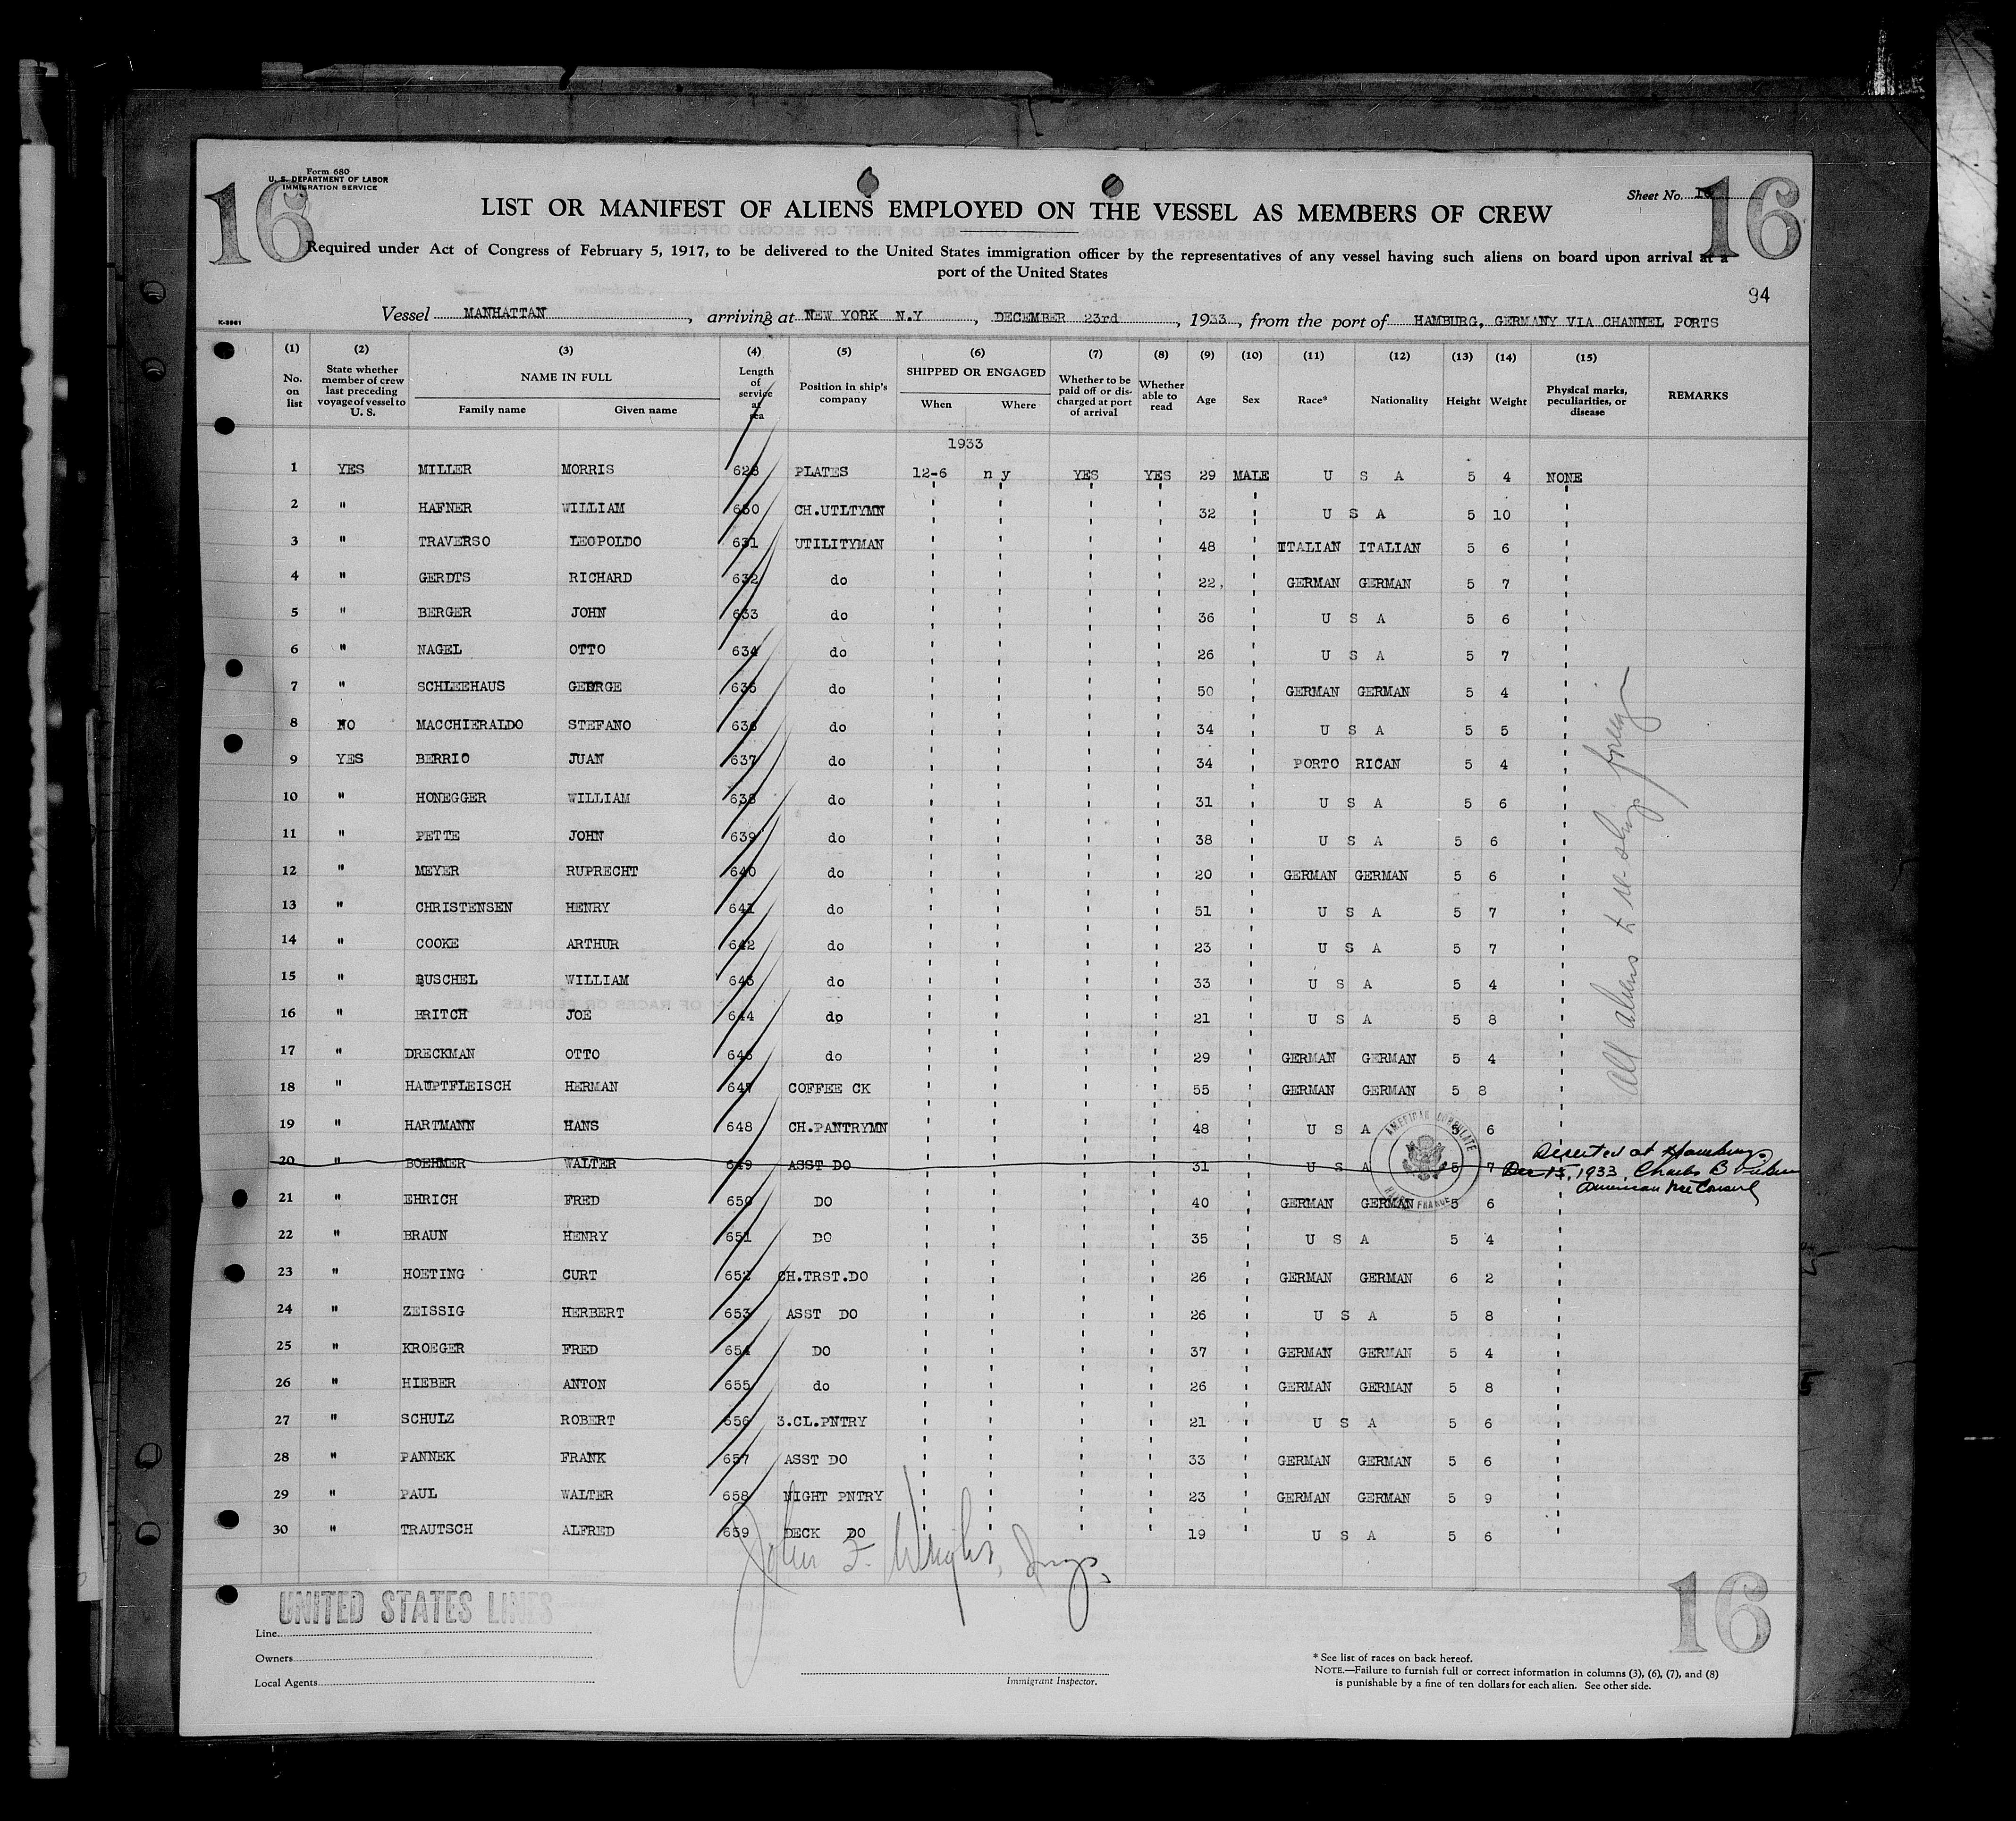 Form 680
U. S. DEPARTMENT OF LABOR
IMMIGRATION SERVICE
16
16
Sheet No. 16
LIST OR MANIFEST OF ALIENS EMPLOYED ON THE VESSEL AS MEMBERS OF CREW
Required under Act of Congress of February 5, 1917, to be delivered to the United States immigration officer by the representatives of any vessel having such aliens on board upon arrival at a
port of the United States
94
K-2961
Vessel MANHATTAN, arriving at NEW YORK N.Y, DECEMBER 23rd, 1933, from the port of HAMBURG, GERMANY VIA CHANNEL PORTS
(1) No. on list (2) State whether member of crew last preceding voyage of vessel to U. S. (3) NAME IN FULL Family name Given name (4) Length of service at sea (5) Position in ship's company (6) SHIPPED OR ENGAGED When Where (7) Whether to be paid off or discharged at port of arrival (8) Whether able to read (9) Age (10) Sex (11) Race* (12) Nationality (13) Height (14) Weight (15) Physical marks, peculiarities, or disease REMARKS
1933
1 YES MILLER MORRIS 628 PLATES 12-6 n y YES YES 29 MALE U S A 5 4 NONE
2 " HAFNER WILLIAM 630 CH.UTLTYMN 32 U S A 5 10
3 " TRAVERSO LEOPOLDO 631 UTILITYMAN 48 ITALIAN ITALIAN 5 6
4 " GERDTS RICHARD 632 do 22, GERMAN GERMAN 5 7
5 " BERGER JOHN 633 do 36 U S A 5 6
6 " NAGEL OTTO 634 do 26 U S A 5 7
7 " SCHLEEHAUS GEORGE 635 do 50 GERMAN GERMAN 5 4
8 NO MACCHIERALDO STEFANO 636 do 34 U S A 5 5
9 YES BERRIO JUAN 637 do 34 PORTO RICAN 5 4
10 " HONEGGER WILLIAM 638 do 31 U S A 5 6
11 " PETTE JOHN 639 do 38 U S A 5 6
12 " MEYER RUPRECHT 640 do 20 GERMAN GERMAN 5 6
13 " CHRISTENSEN HENRY 641 do 51 U S A 5 7
14 " COOKE ARTHUR 642 do 23 U S A 5 7
15 " BUSCHEL WILLIAM 643 do 33 U S A 5 4
16 " BRITCH JOE 644 do 21 U S A 5 8
17 " DRECKMAN OTTO 646 do 29 GERMAN GERMAN 5 4
18 " HAUPTFLEISCH HERMAN 647 COFFEE CK 55 GERMAN GERMAN 5 8
19 " HARTMANN HANS 648 CH.PANTRYMN 48 U S A 5 6
20 " BOEHMER WALTER 649 ASST DO 31 U S A 5 7 Deserted at Hamburg
Dec 15, 1933 Charles B
American Vice Consul
21 " EHRICH FRED 650 DO 40 GERMAN GERMAN 5 6
22 " BRAUN HENRY 651 DO 35 U S A 5 4
23 " HOETING CURT 652 CH.TRST.DO 26 GERMAN GERMAN 6 2
24 " ZEISSIG HERBERT 653 ASST DO 26 U S A 5 8
25 " KROEGER FRED 654 DO 37 GERMAN GERMAN 5 4
26 " HIEBER ANTON 655 do 26 GERMAN GERMAN 5 8
27 " SCHULZ ROBERT 656 3.CL.PNTRY 21 U S A 5 6
28 " PANNEK FRANK 657 ASST DO 33 GERMAN GERMAN 5 6
29 " PAUL WALTER 658 NIGHT PNTRY 23 GERMAN GERMAN 5 9
30 " TRAUTSCH ALFRED 659 DECK DO 19 U S A 5 6
All aliens to re-ship foreign
AMERICAN CONSULATE
FRANCE
John F. Wright, Insp.
UNITED STATES LINES
16
Line
Owners
Local Agents
Immigrant Inspector.
* See list of races on back hereof.
NOTE.—Failure to furnish full or correct information in columns (3), (6), (7), and (8)
is punishable by a fine of ten dollars for each alien. See other side.